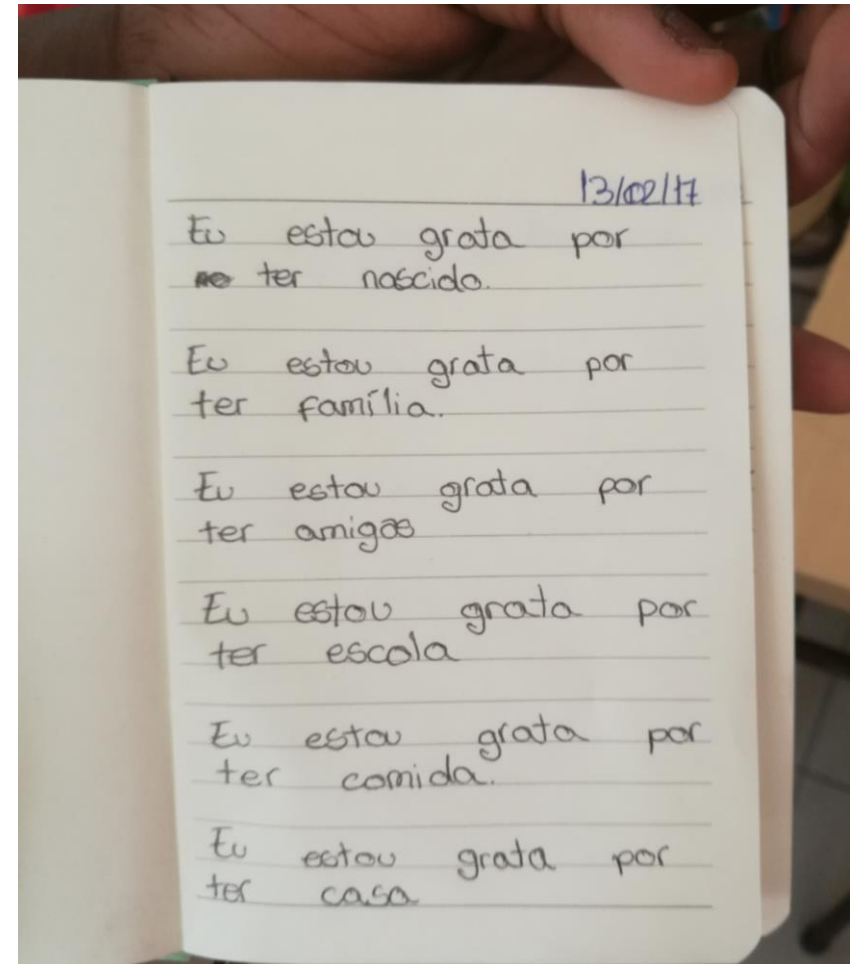 13/02/17
Eu estou grata por
ter nascido.
Eu estou grata por
ter família.
Eu estou grata por
ter amigos
Eu estou grata por
ter escola
Eu estou grata por
ter comida.
Eu estou grata por
ter casa